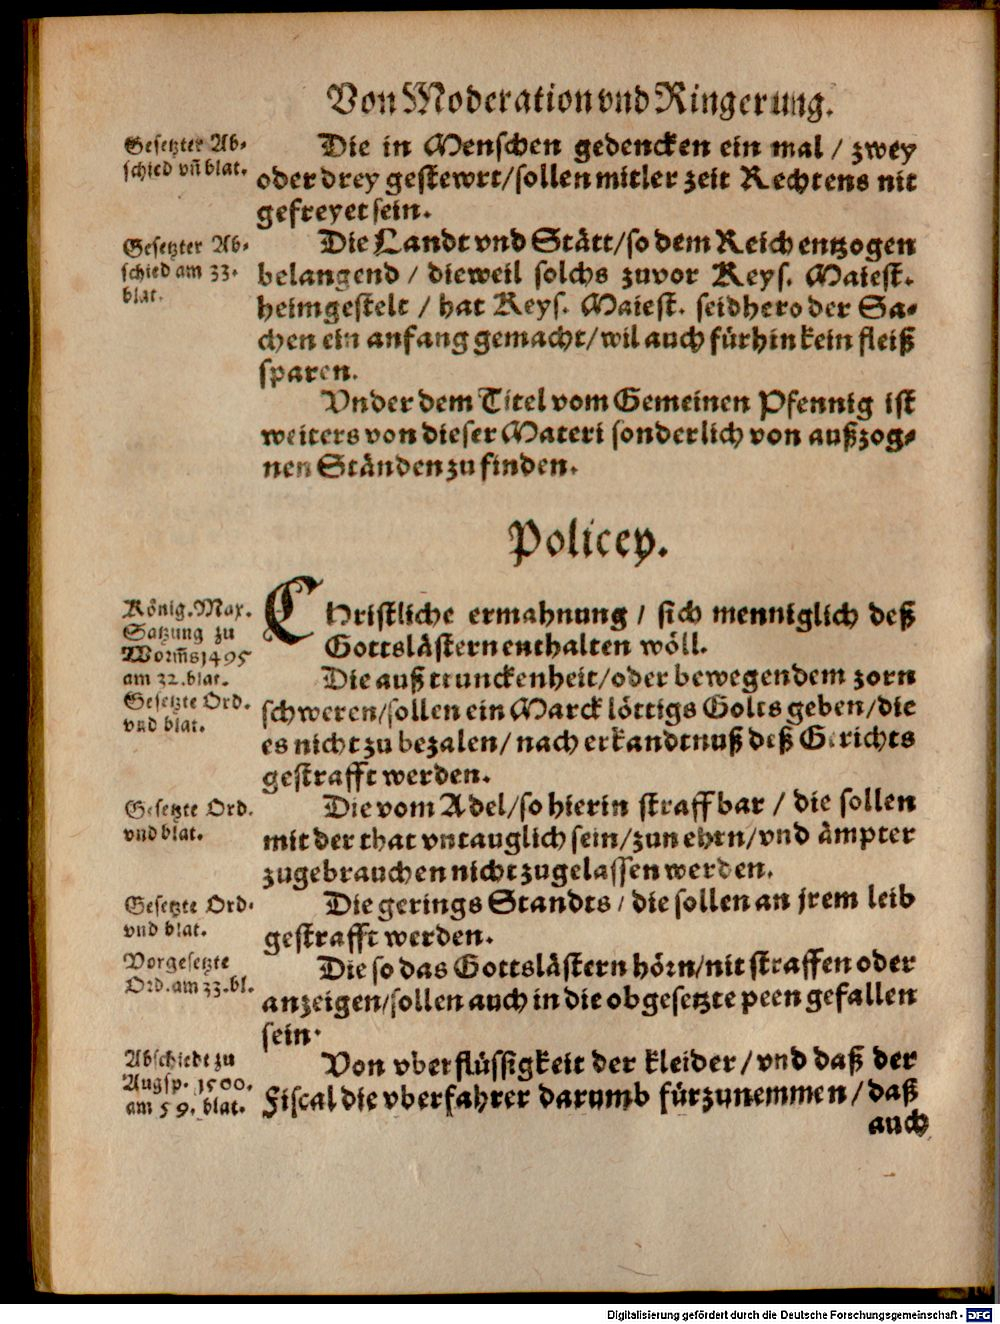 Von Moderation vnd Ringerung.
Gesetzter Ab-
schied vñ blat.
Die in Menschen gedencken ein mal / zwey
oder drey gestewrt / sollen mitler zeit Rechtens nit
gefreyet sein.
Gesetzter Ab-
schied am 33.
blat.
Die Landt vnd Stätt / so dem Reich entzogen
belangend / dieweil solchs zuvor Keys. Maiest.
heimgestelt / hat Keys. Maiest. seidhero der Sa-
chen ein anfang gemacht / wil auch fürhin kein fleiß
sparen.
Vnder dem Titel vom Gemeinen Pfennig ist
weiters von dieser Materi sonderlich von außzog-
nen Ständen zu finden.
Policey.
König. Max.
Satzung zu
Worm̃s 1495
am 32. blat.
CHristliche ermahnung / sich menniglich deß
Gottslästern enthalten wöll.
Gesetzte Ord.
vnd blat.
Die auß trunckenheit / oder bewegendem zorn
schweren / sollen ein Marck löttigs Golts geben / die
es nicht zu bezalen / nach erkandtnuß deß Gerichts
gestrafft werden.
Gesetzte Ord.
vnd blat.
Die vom Adel / so hierin straffbar / die sollen
mit der that vntauglich sein / zun ehrn / vnd ämpter
zugebrauchen nicht zugelassen werden.
Gesetzte Ord-
vnd blat.
Die gerings Standts / die sollen an jrem leib
gestrafft werden.
Vorgesetzte
Ord. am 33. bl.
Die so das Gottslästern hörn / nit straffen oder
anzeigen / sollen auch in die obgesetzte peen gefallen
sein.
Abschiedt zu
Augsp. 1500.
am 59. blat.
Von vberflüssigkeit der kleider / vnd daß der
Fiscal die vberfahrer darumb fürzunemmen / daß
auch
Digitalisierung gefördert durch die Deutsche Forschungsgemeinschaft - DFG